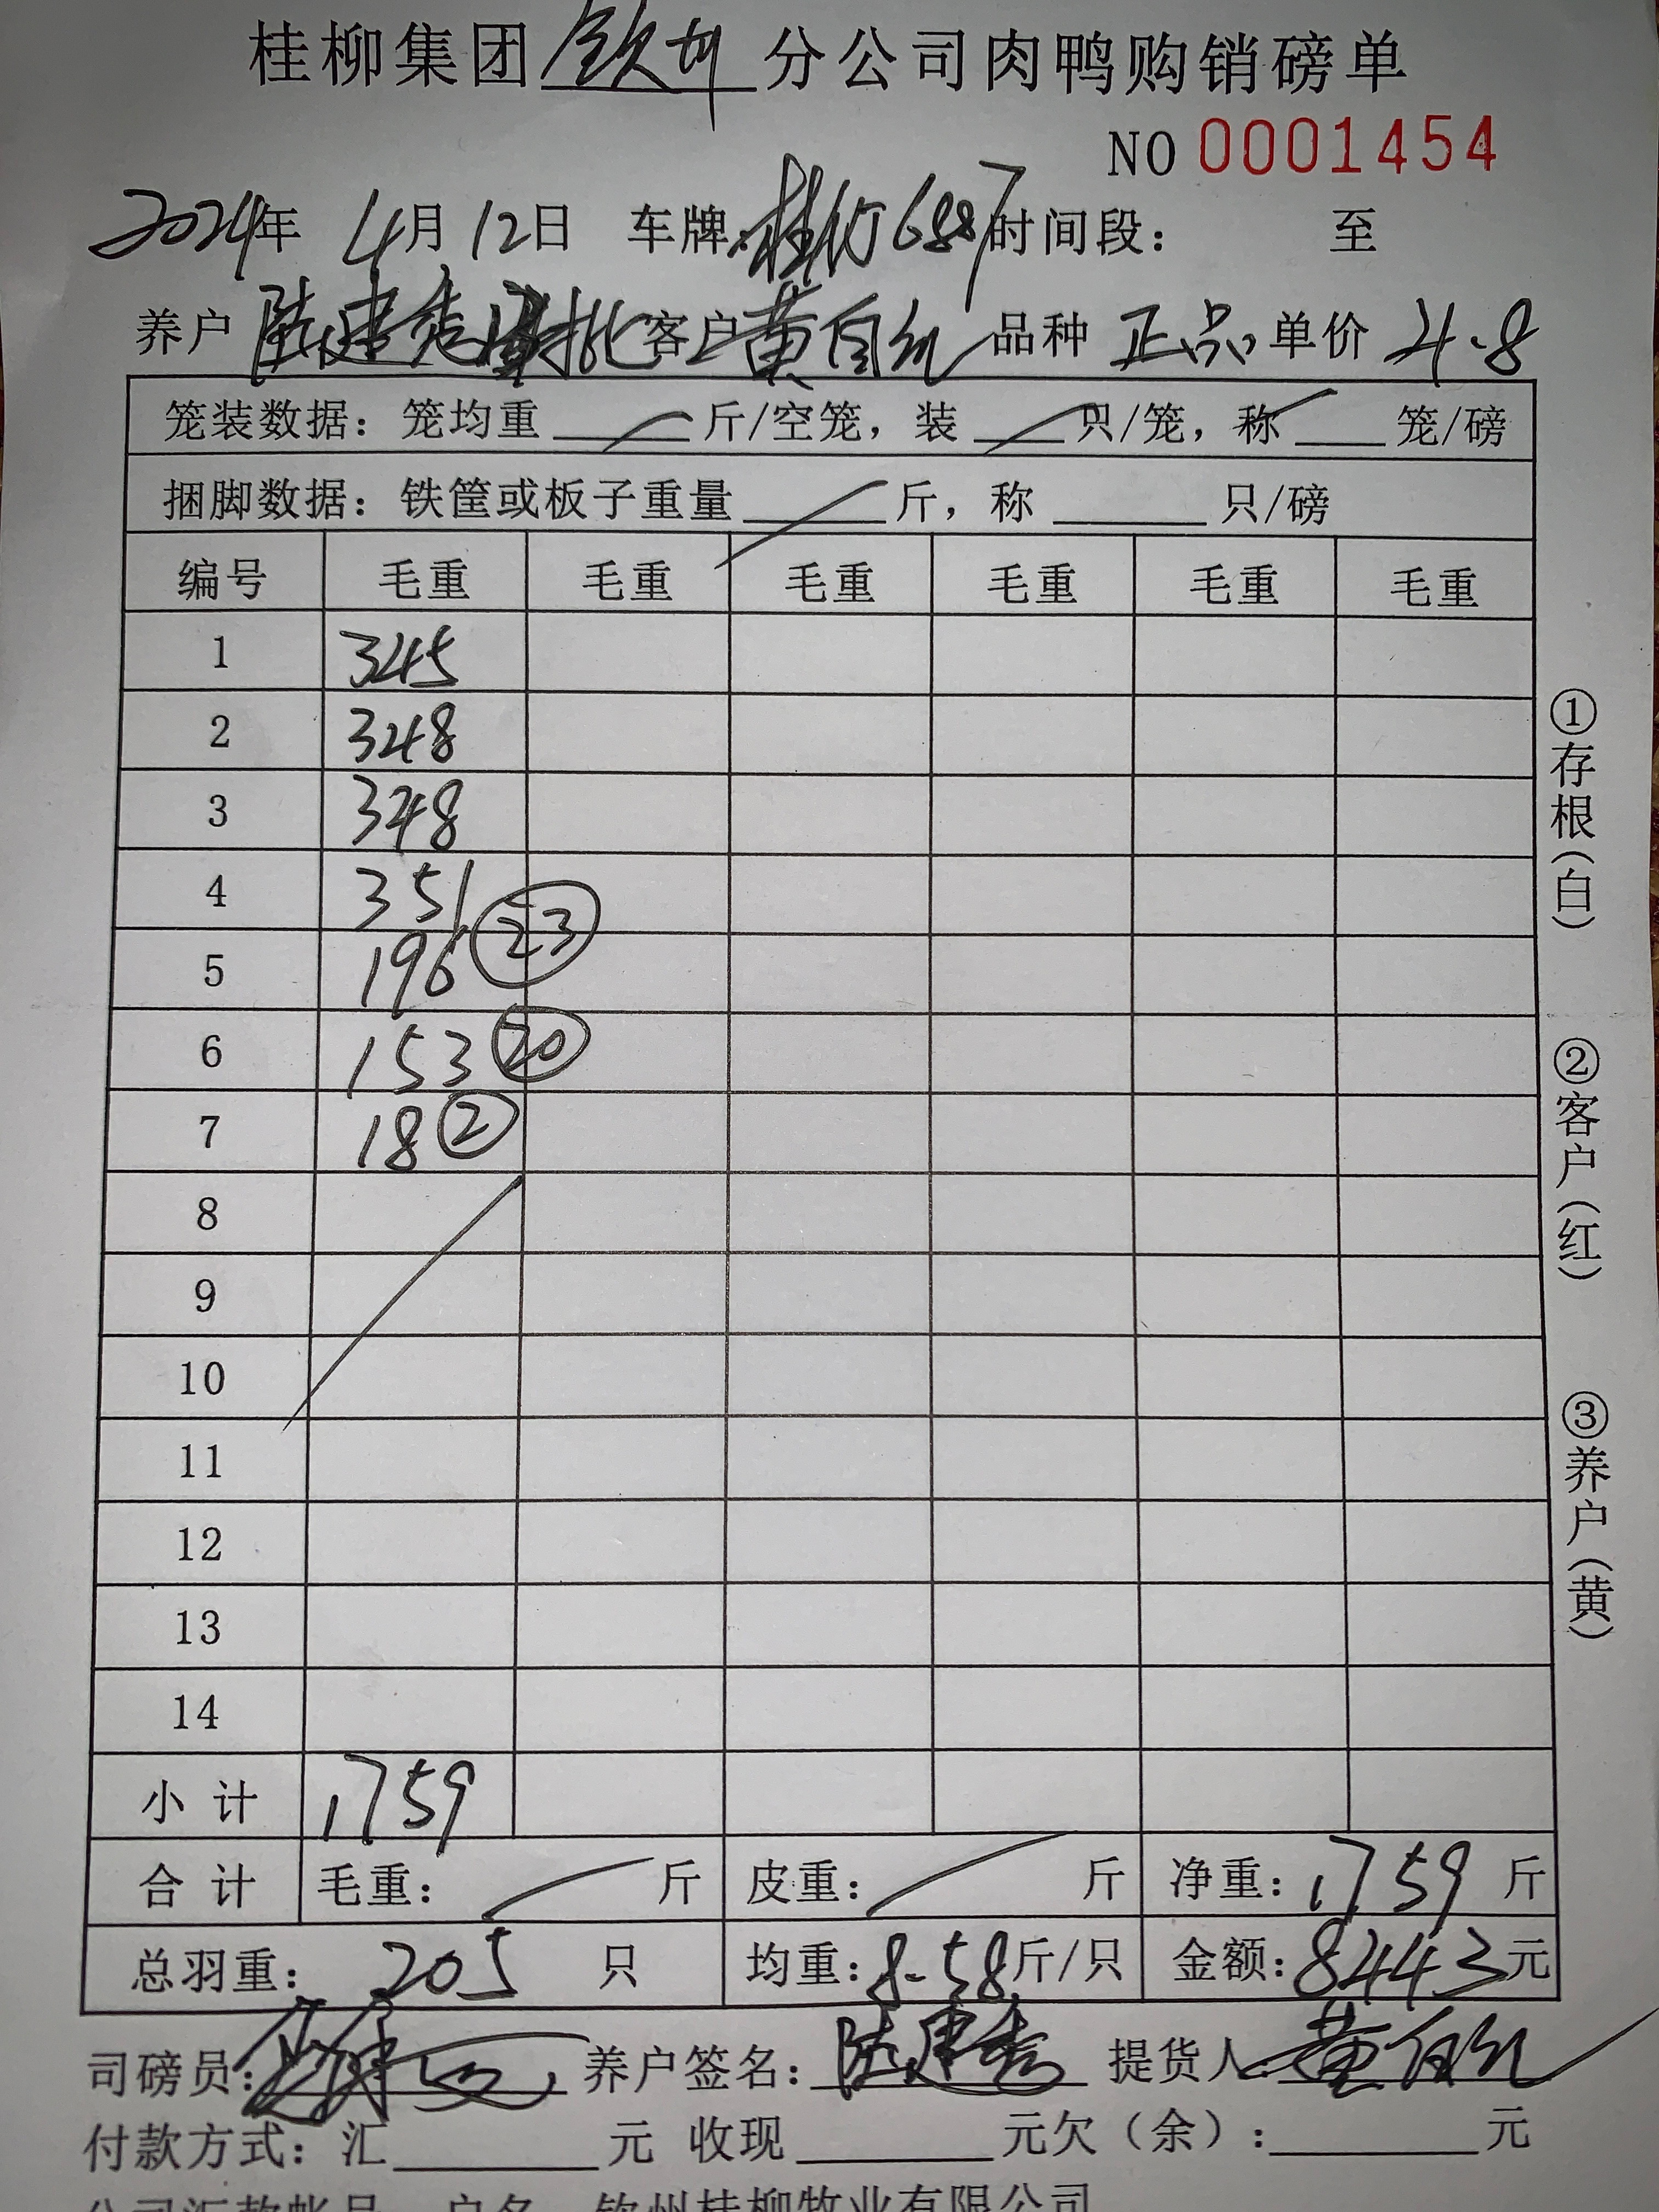 桂柳集团钦州分公司肉鸭购销磅单
NO 0001454
2024年 4月12日 车牌:桂 6887 时间段: 至
养户 陆建秀 批 客户 黄自红 品种 正品 单价 4.8
笼装数据: 笼均重 斤/空笼, 装 只/笼, 称 笼/磅
捆脚数据: 铁筐或板子重量 斤, 称 只/磅
编号 毛重 毛重 毛重 毛重 毛重 毛重
1 345
2 348
3 348
4 351
5 196 23
6 153 20
7 18 2
8
9
10
11
12
13
14
小计 1759
合计 毛重: 斤 皮重: 斤 净重: 1759 斤
总羽重: 205 只 均重: 8.58 斤/只 金额: 8443 元
司磅员: 养户签名: 陆建秀 提货人: 黄自红
付款方式: 汇 元 收现 元欠(余): 元
公司汇款帐号 户名 钦州桂柳牧业有限公司
①存根(白)
②客户(红)
③养户(黄)